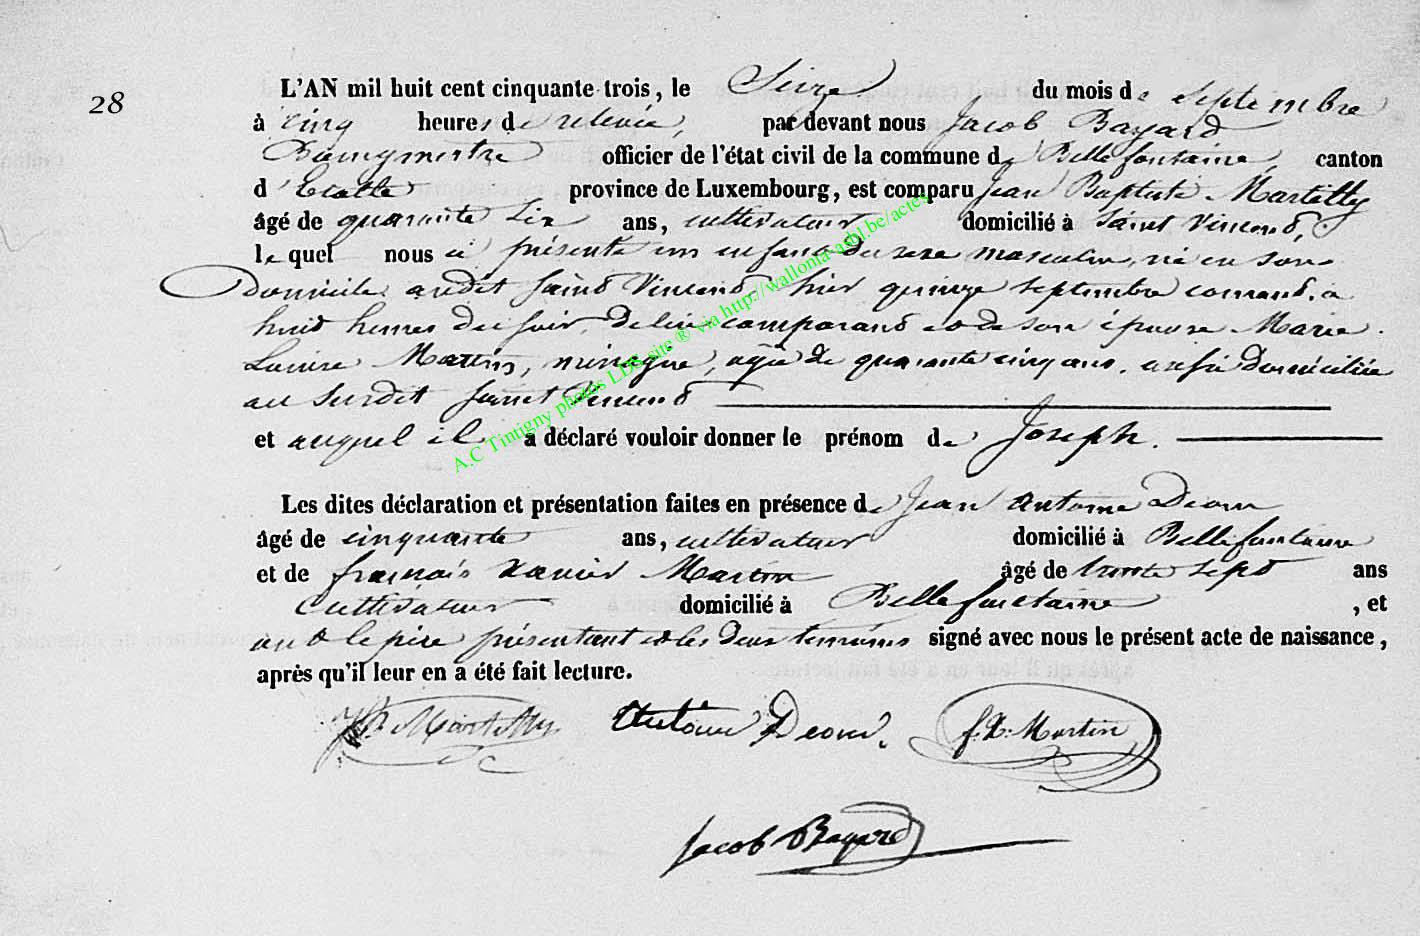 28
L'AN mil huit cent cinquante trois, le Seize du mois de septembre
à cinq heures de relevée, par devant nous Jacob Bayard
Bourgmestre officier de l'état civil de la commune de Bellefontaine, canton
d'Etalle province de Luxembourg, est comparu Jean Baptiste Martilly
âgé de quarante six ans, cultivateur domicilié à Saint Vincent,
lequel nous a présenté un enfant du sexe masculin, né en son
Domicile audit Saint Vincent hier quinze septembre courant, à
huit heures du soir, de lui comparant et de son épouse Marie
Louise Martin, ménagère, agée de quarante cinq ans, aussi Domiciliée
au susdit Saint Vincent
et auquel il a déclaré vouloir donner le prénom de Joseph.
Les dites déclaration et présentation faites en présence de Jean Antoine Deom
âgé de cinquante ans, cultivateur domicilié à Bellefontaine
et de françois Xavier Martin âgé de trente sept ans
Cultivateur domicilié à Bellefontaine, et
ont le père présentant et les deux temoins signé avec nous le présent acte de naissance,
après qu'il leur en a été fait lecture.
JB Martilly Antoine Deom. f. X. Martin
Jacob Bayard
A.C Tintigny photos LDS site ® via http://wallonia-asbl.be/actes